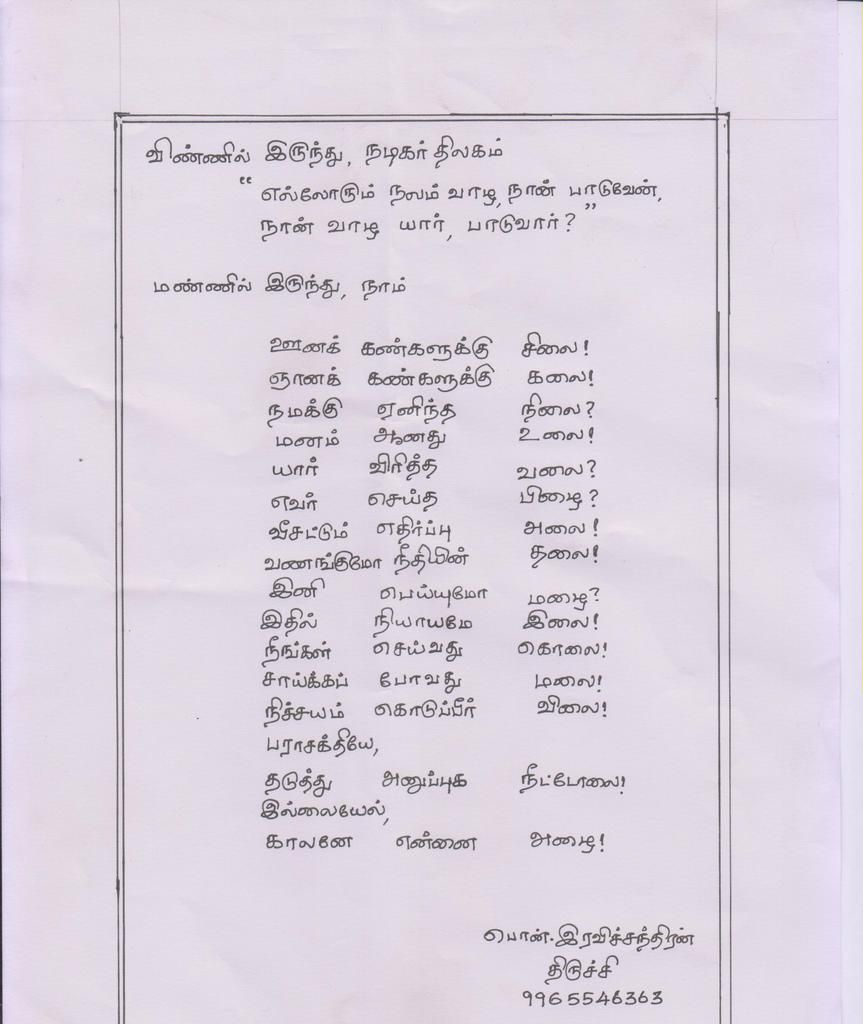 விண்ணில் இருந்து, நடிகர் திலகம்
“எல்லோரும் நலம் வாழ, நான் பாடுவேன்,
நான் வாழ யார், பாடுவார்?”
மண்ணில் இருந்து, நாம்
ஊனக் கண்களுக்கு சிலை!
ஞானக் கண்களுக்கு கலை!
நமக்கு ஏனிந்த நிலை?
மனம் ஆனது உலை!
யார் விரித்த வலை?
எவர் செய்த பிழை?
வீசட்டும் எதிர்ப்பு அலை!
வணங்குமோ நீதியின் தலை!
இனி பெய்யுமோ மழை?
இதில் நியாயமே இலை!
நீங்கள் செய்வது கொலை!
சாய்க்கப் போவது மலை!
நிச்சயம் கொடுப்பீர் விலை!
பராசக்தியே,
தடுத்து அனுப்புக நீட்டோலை!
இல்லையேல்,
காலனே என்னை அழை!
பொன்.இரவிச்சந்திரன்
திருச்சி
9965546363